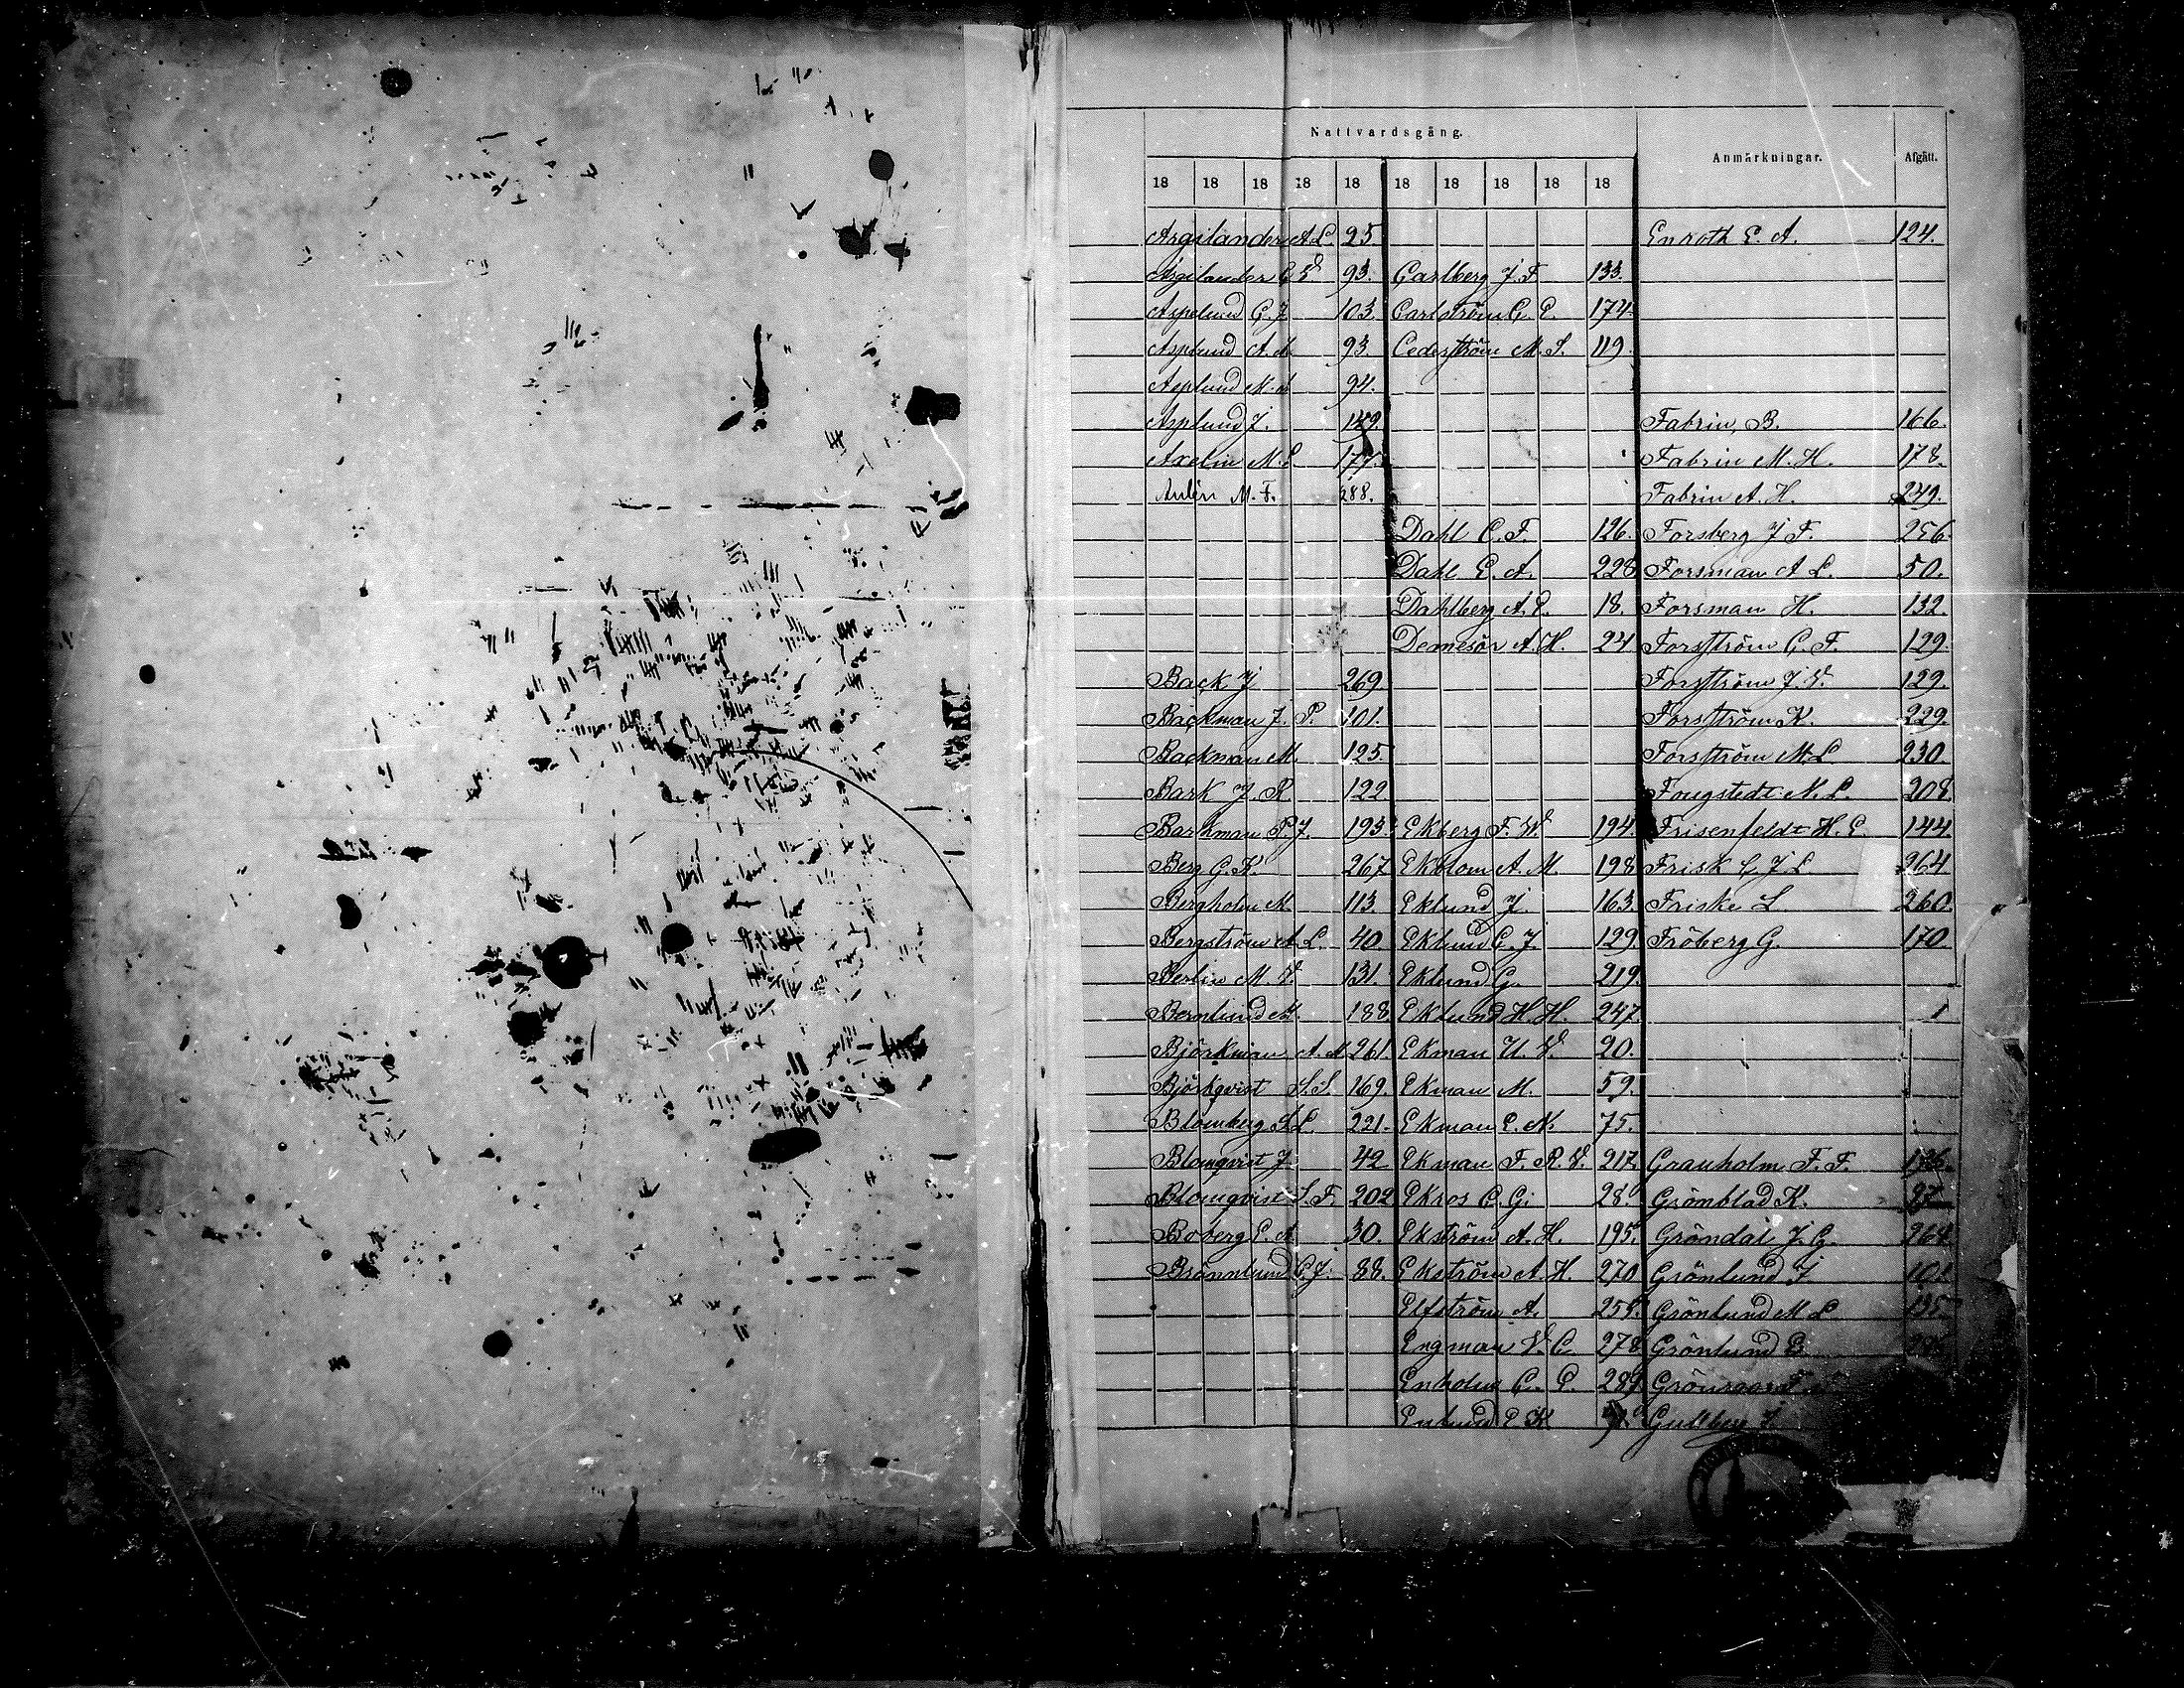 Nattvardsgång.
Anmärkningar.
Afgått.
18 18 18 18 18 18 18 18 18 18
Argilander A. L. 25
Argilander G. V. 93.
Asplund G. J. 103.
Asplund A. A. 93.
Asplund M. A. 94.
Asplund J. 149.
Axelin M. L. 177.
Aulin M. F. 288.
Back J. 269
Backman J. P. 101.
Backman M. 125
Bark J. R. 122
Barkman P. J. 193.
Berg G. K. 267
Bergholm M. 113.
Bergström A. L. 40
Berlin M. V. 131.
Bernlund A. 188.
Björkman A. M. 261.
Björkqvist S. S. 169.
Blomberg A. L. 221.
Blomqvist J. 42
Blomqvist S. F. 202
Boberg E. A. 30.
Brännlund C. J. 88.
Carlberg J. F. 133.
Carlström C. E. 174
Cederström M. S. 119
Dahl C. F. 126.
Dahl E. A. 228
Dahlberg A. E. 18.
Demesör A. H. 24
Ekberg F. W. 194.
Ekblom A. M. 198
Eklund J. 163.
Eklund C. J. 129
Eklund G. 219.
Eklund H. H. 247
Ekman U. V. 20.
Ekman M. 59.
Ekman E. N. 75.
Ekman F. R. V. 217.
Ekros C. G. 28.
Ekström A. H. 195.
Ekström A. H. 270
Elfström A. 255.
Engman V. C. 278
Enholm C. E. 289
Enlund E. K.
Enroth E. A. 124.
Fabrin, B. 166.
Fabrin M. H. 178.
Fabrin A. H. 249.
Forsberg J. F. 256.
Forsman A. L. 50.
Forsman H. 132.
Forsström C. F. 129.
Forsström J. V. 129.
Forsström K. 229.
Forsström M. L. 230.
Fougstedt N. L. 208.
Frisenfeldt H. E. 144.
Frisk C. J. L. 264
Friske L. 260.
Fröberg G. 170
Granholm F. F. 176.
Grönblad K. 27
Gröndal J. G. 264.
Grönlund J. 101
Grönlund M. L. 135.
Grönlund E.
Grönroos
Gullberg J.